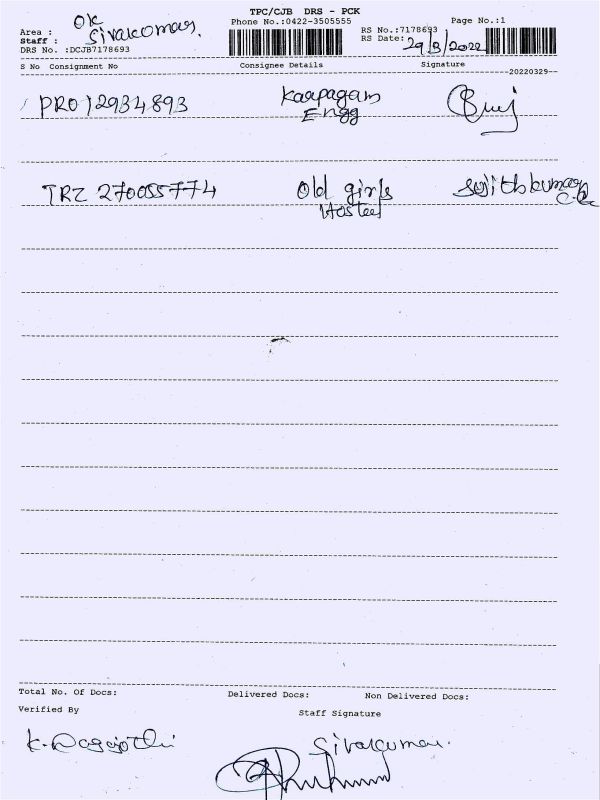 TPC/CJB DRS - PCK
Phone No.:0422-3505555
Page No.:1
Area : OK
Staff : Sivakumar.
DRS No. :DCJB7178693
RS No.:7178693
RS Date: 29/3/2022
S No Consignment No Consignee Details Signature
--20220329--
PRO 12934893 Kaapagam
Engg
TRZ 270055774 Old girls Sujithkumar
Hostel
Total No. Of Docs: Delivered Docs: Non Delivered Docs:
Verified By Staff Signature
Sivakumar.